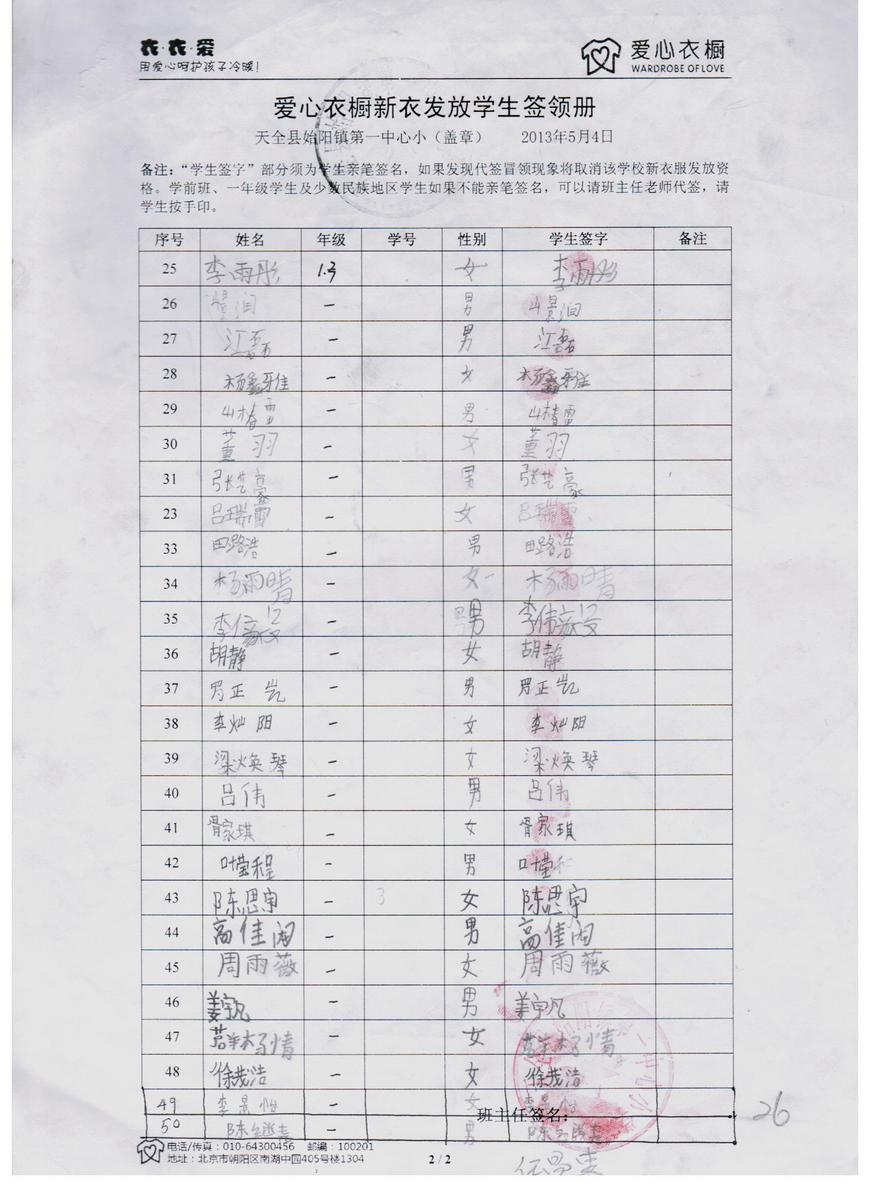 衣·衣·爱 爱心衣橱
用爱心呵护孩子冷暖! WARDROBE OF LOVE
爱心衣橱新衣发放学生签领册
天全县始阳镇第一中心小（盖章） 2013年5月4日
备注：“学生签字”部分须为学生亲笔签名，如果发现代签冒领现象将取消该学校新衣服发放资
格。学前班、一年级学生及少数民族地区学生如果不能亲笔签名，可以请班主任老师代签，请
学生按手印。
序号 姓名 年级 学号 性别 学生签字 备注
25 李雨彤 1.3 女 李雨彤
26 一 男
27 江磊 一 男 江磊
28 杨鑫雅佳 一 女 杨鑫雅佳
29 一 男
30 董羽 一 女 董羽
31 张芸豪 一 男 张芸豪
23 吕瑞雪 一 女 吕瑞雪
33 田路浩 一 男 田路浩
34 杨雨晴 一 女 杨雨晴
35 一 男
36 胡静 一 女 胡静
37 罗正岚 一 男 罗正岚
38 李灿阳 一 女 李灿阳
39 梁焕琴 一 女 梁焕琴
40 吕伟 一 男 吕伟
41 胥家琪 一 女 胥家琪
42 叶莹程 一 男 叶莹程
43 陈思宇 一 3 女 陈思宇
44 高佳闼 一 男 高佳闼
45 周雨薇 一 女 周雨薇
46 姜宇凡 一 男 姜宇凡
47 一 女
48 徐茂洁 一 女 徐茂洁
49 李景怡 一 女 李景怡
班主任签名： 26
50 一 男
电话/传真：010-64300456 邮编：100201
地址：北京市朝阳区南湖中园405号楼1304 2 / 2